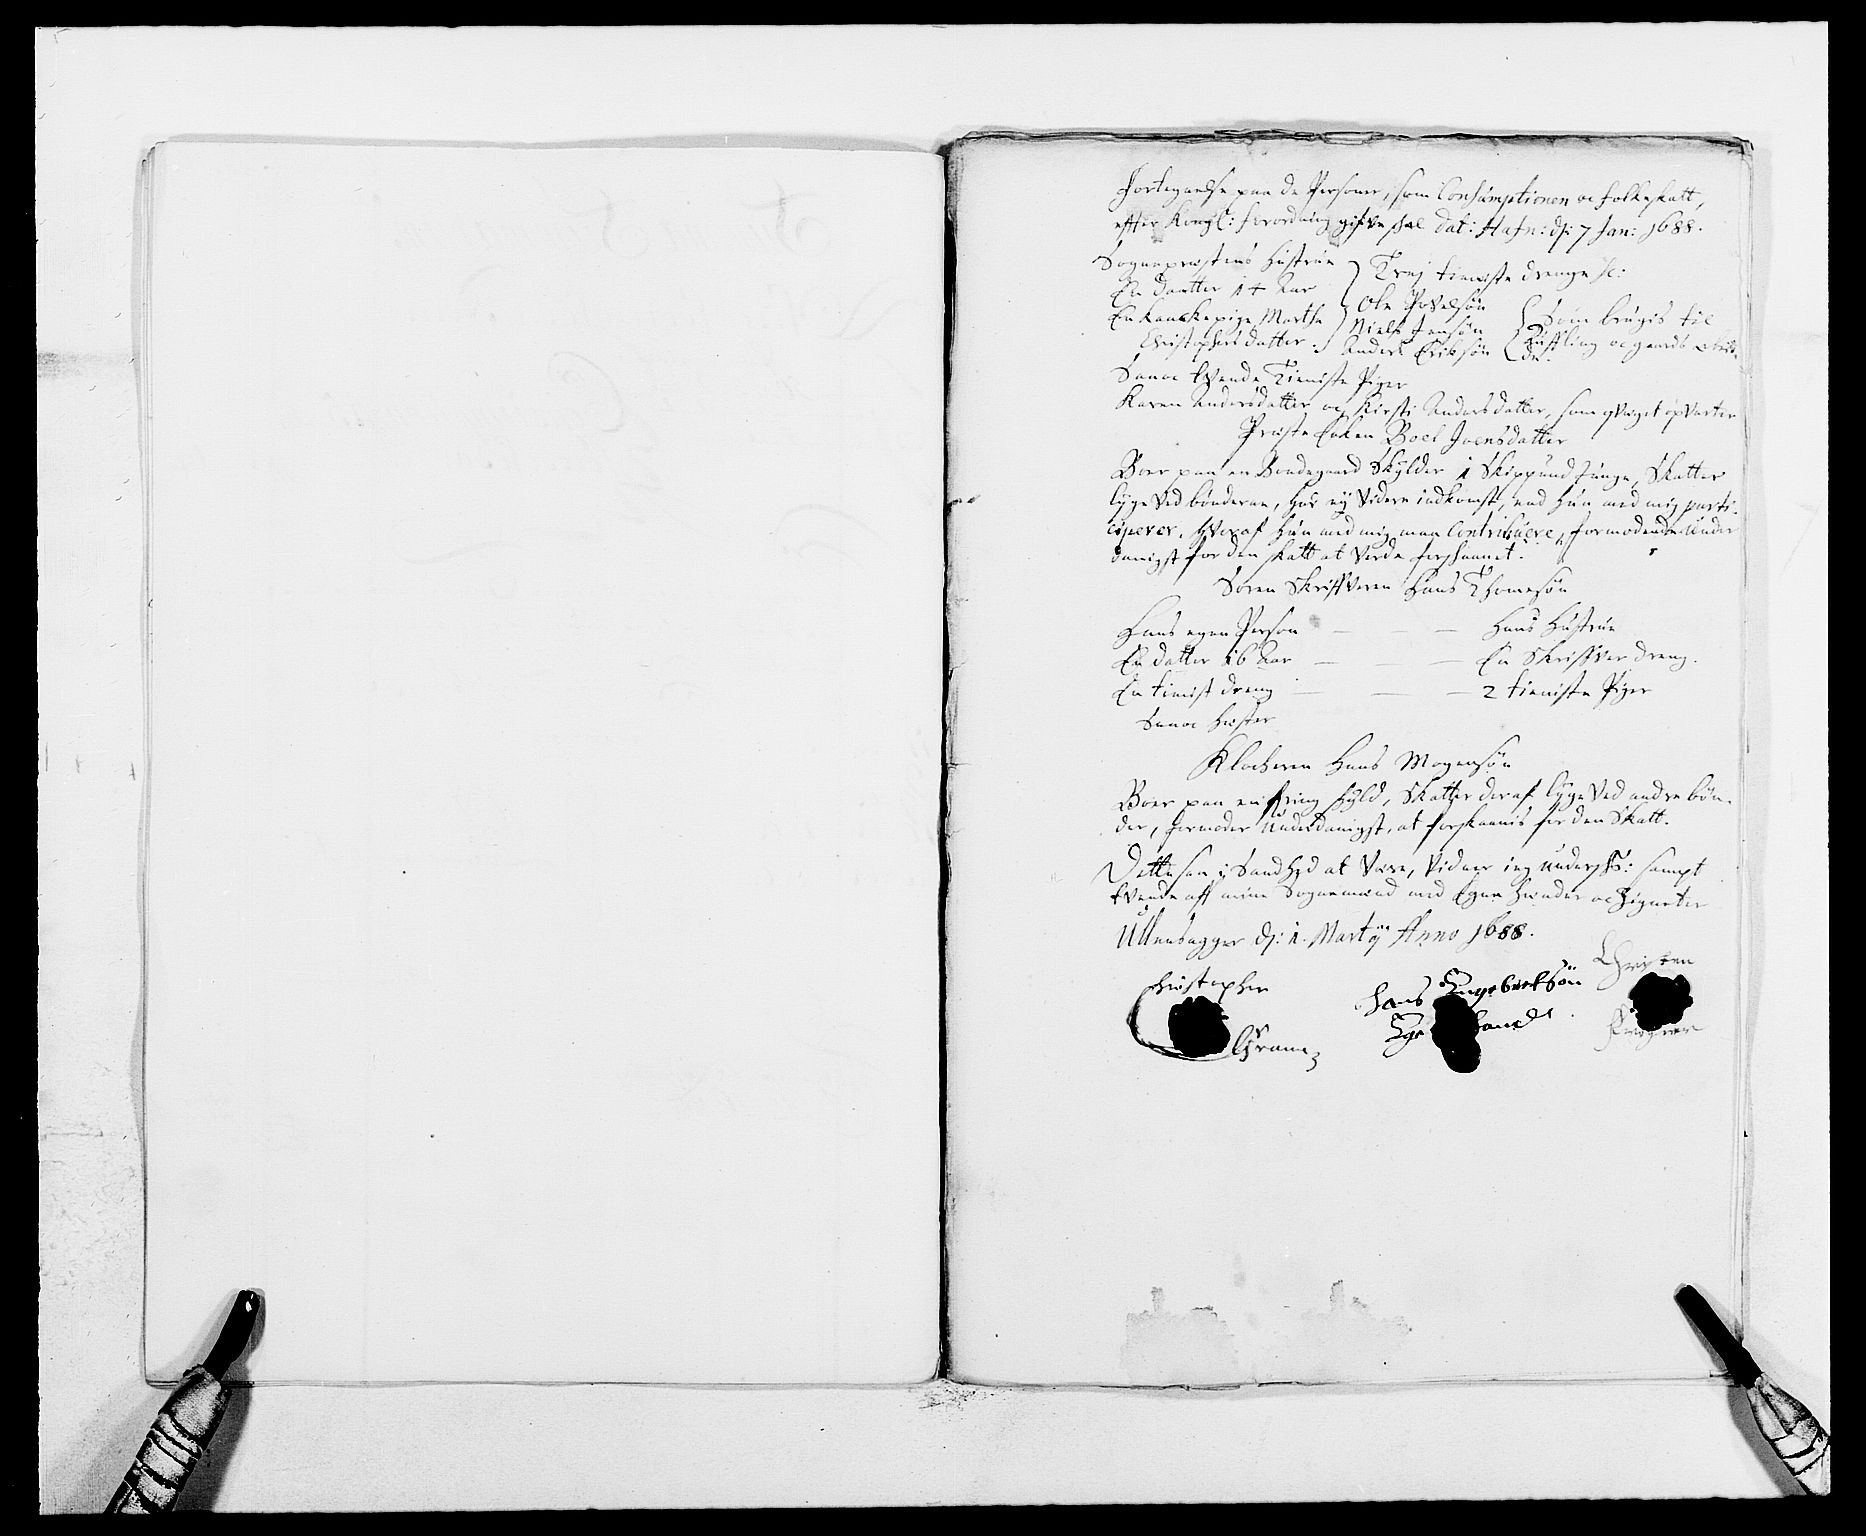 Fortegnelse paa de Personer, som Consumptionen oc folkeskatt,
effter Kongl: forordning gifve skal Dat: Hafn: d: 7 Jan: 1688.
Sogneprestens Hustrue } Trej tieniste drenge
En daatter 14 Aar
En kaackepige, Marthe
Christophersdatter
Ole Povelsøn
Niels Jensøn
Anders Eriksøn
som brugis til
oc gaards
Samt tvende Tieniste Piger
Karen Andersdatter oc Kirsti Andersdatter, som qveget opvarter
Præste Enken Boel Joensdatter
Boer paa en Bondegaard Skylder 1 Skippund tunge, Skatter
lyge ved bønderne, har ej videre indkomst, end hun med mig parti-
ciperer, hvoraf hun med mig maa Contribuere, formodende under
danigst for den skatt at verde forskaanet.
Soren Skrifveren Hans Thomesøn
Hans egen Person — — — Hans Hustrue
En datter 16 Aar — — — En Skrifver dreng.
En tienist dreng — — — 2 tieniste Piger
Samt
Klockeren Hans Mogensøn
Boer paa en ring skyld, Skatter deraf lyge ved andre bøn-
der, formoder underdanigst, at forskaanis for den Skatt.
Dette saa i Sandhed at være, vidner ieg undersk: sampt
tvende aff mine Sognemænd med Egne hænder oc Zigneter
Ullensagger d: 1. Martij Anno 1688.
Christopher
Hans Engebretsøn
Christen
Egen haand